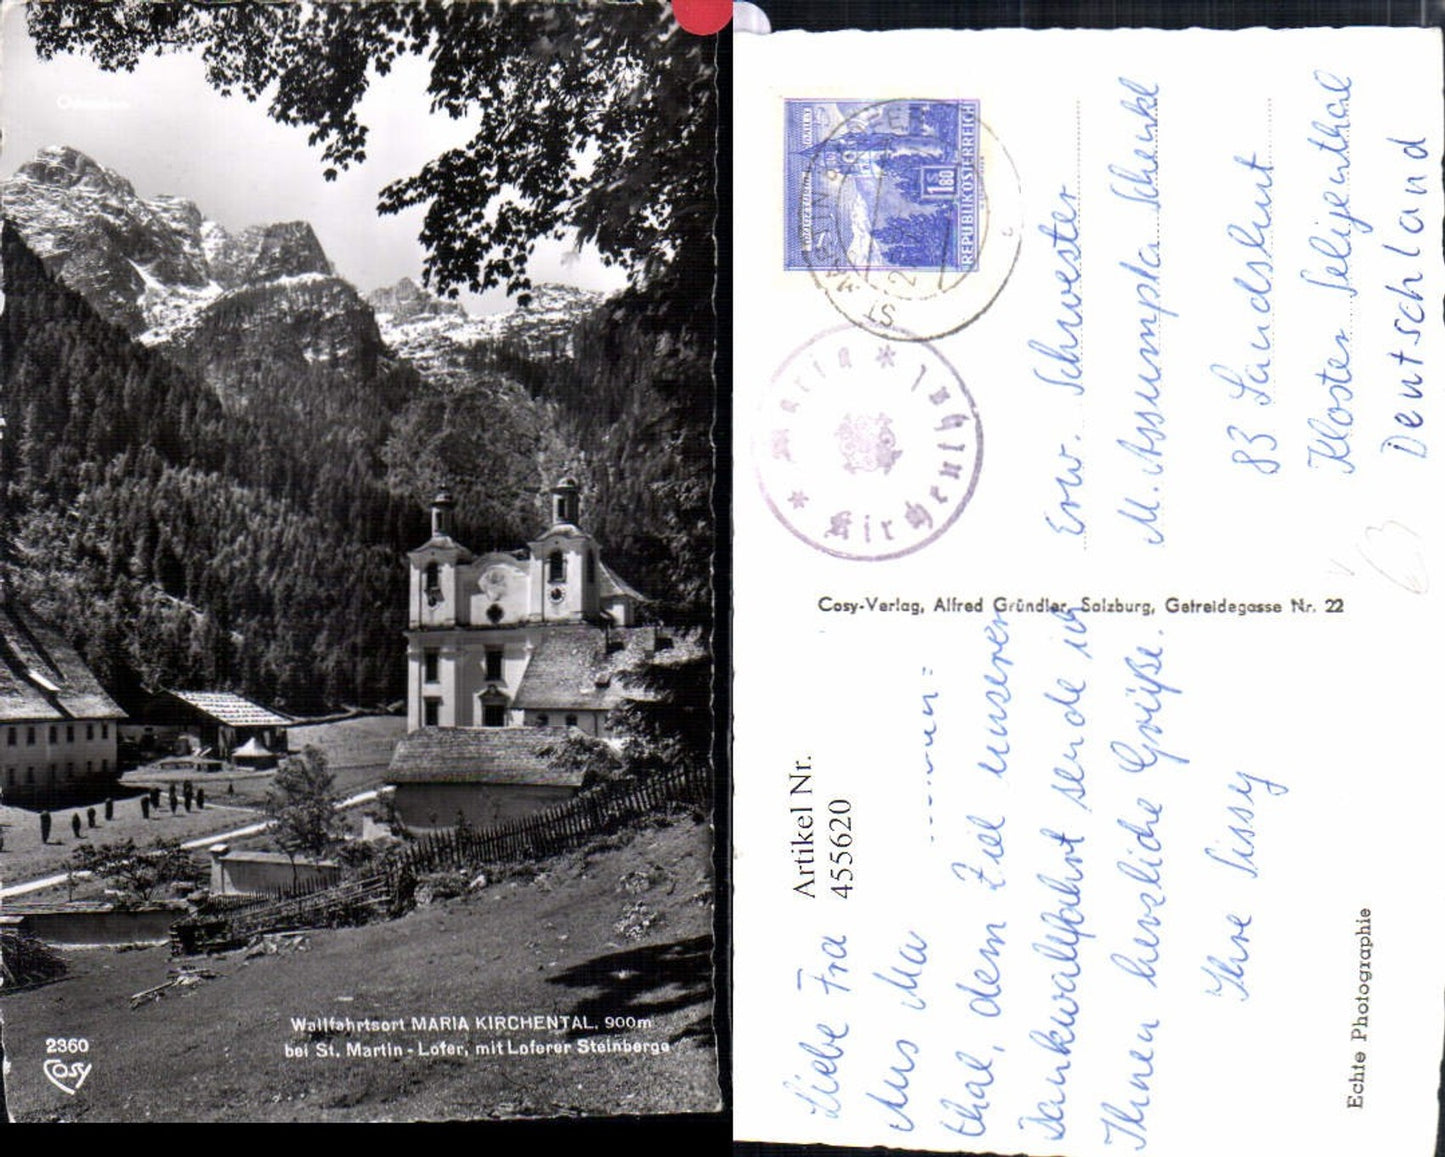 Wallfahrtsort MARIA KIRCHENTAL, 900m
bei St. Martin - Lofer, mit Loferer Steinberge
2360
Cosy
REPUBLIK ÖSTERREICH
S 1.80
ST. MARTIN
Maria
Kirchenthal
Erw. Schwester
M. Assumpta Schenkl
83 Landshut
Kloster Seligenthal
Deutschland
Cosy-Verlag, Alfred Gründler, Salzburg, Getreidegasse Nr. 22
Artikel Nr.
4556620
Liebe Fra
Aus Ma
thal, dem Ziel unserer
Dankwallfahrt sende ich
Ihnen herzliche Grüße.
Ihre Sissy
Echte Photographie